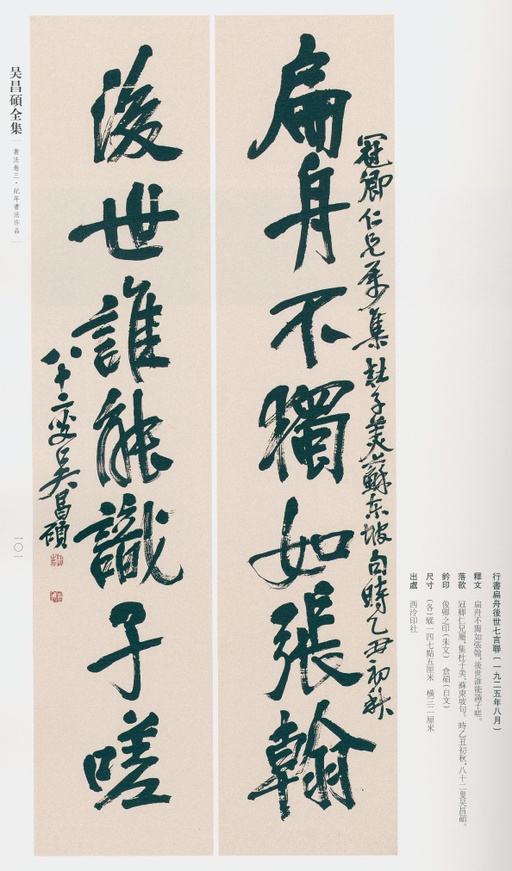 扁舟不獨如張翰
冠卿仁兄屬集杜子美蘇東坡句時乙丑初秋
後世誰能識子嗟
八十二叟吳昌碩
行書扁舟後世七言聯（一九二五年八月）
釋文 扁舟不獨如張翰，後世誰能識子嗟。
落款 冠卿仁兄屬，集杜子美、蘇東坡句。時乙丑初秋，八十二叟吴昌碩。
鈐印 俊卿之印（朱文） 倉碩（白文）
尺寸 （各）縱一四七點五厘米 橫三二厘米
出處 西泠印社
吴昌碩全集
書法卷三·紀年書法作品
一〇一